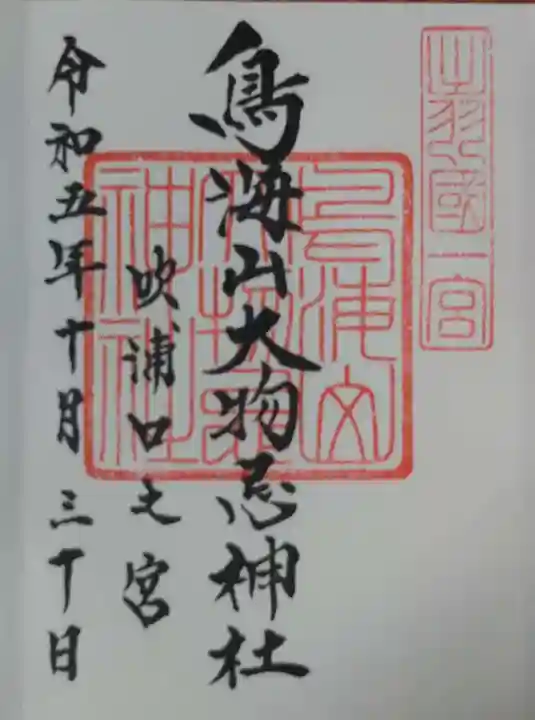 出羽國一宮
鳥海山大物忌神社
吹浦口之宮
令和五年十月三十日